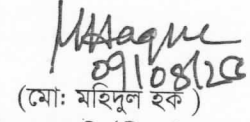 MHaque
09/08/26
(মোঃ মহিদুল হক)